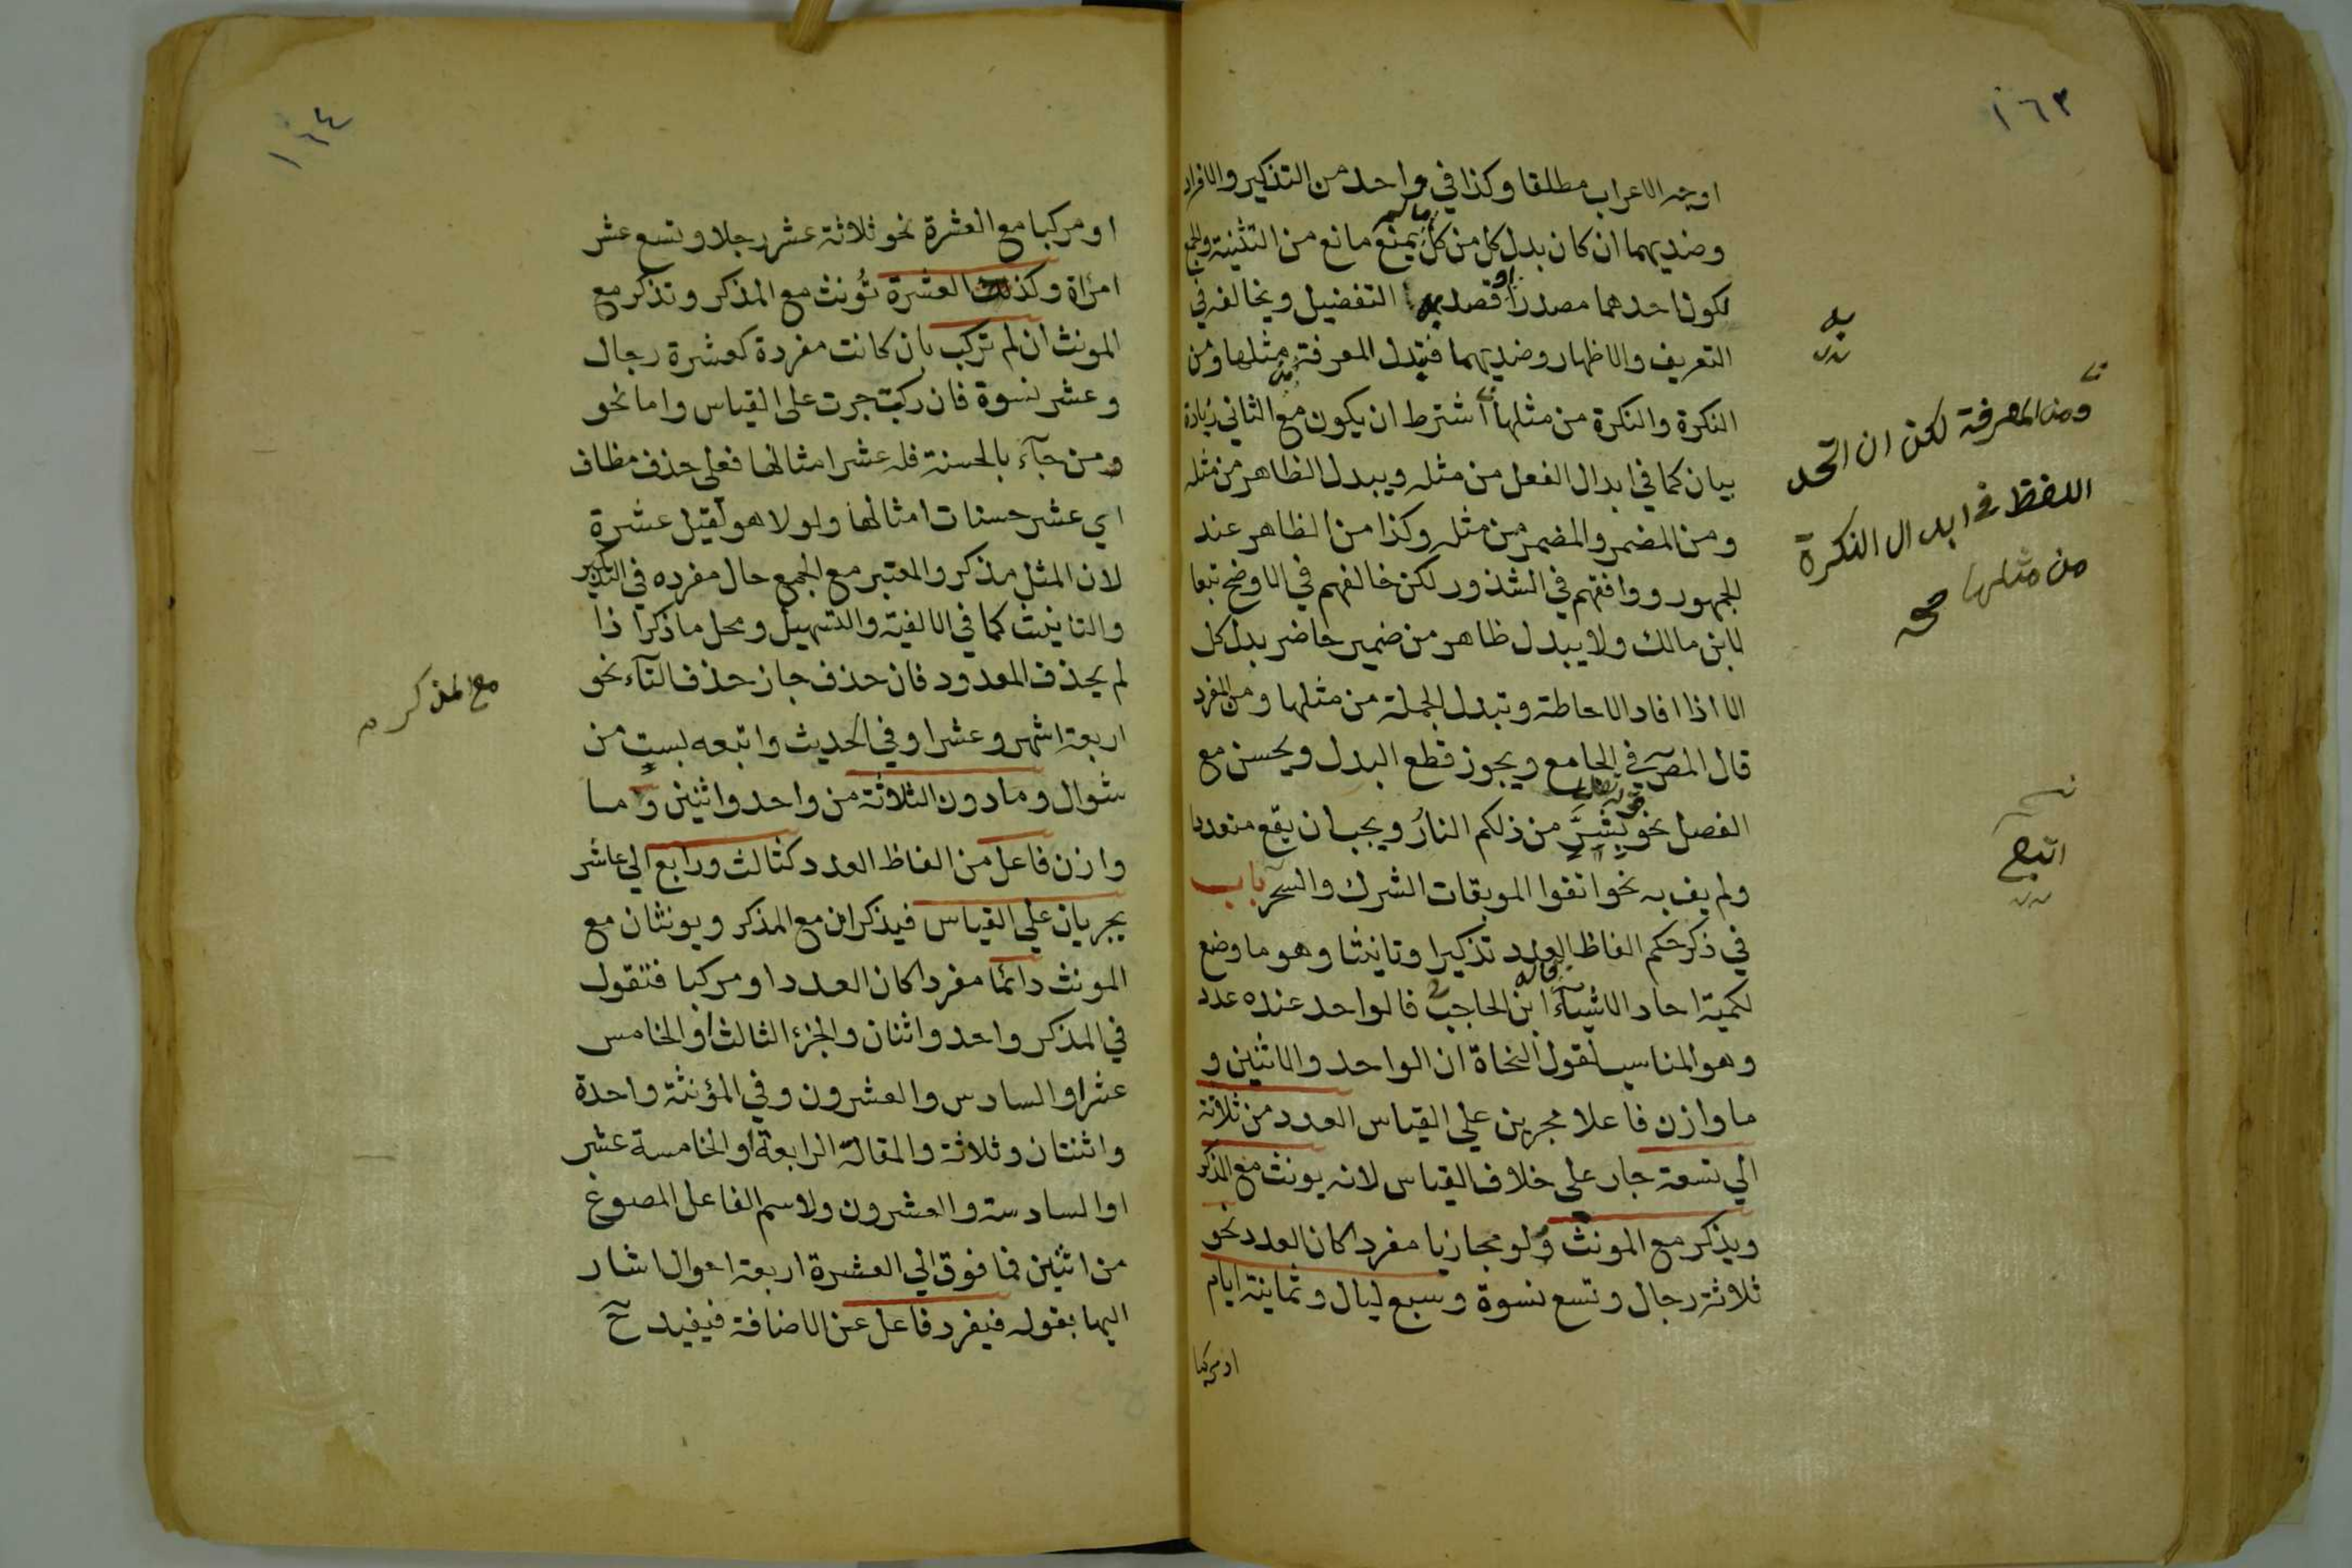 ١٦٣
اوجه الاعراب مطلقا وكذا في واحد من التذكير والافراد
وضديهما ان كان بدل كل من كل ما لم يمنع مانع من التثنية والجمع
لكون احدهما مصدرا او قصد به التفضيل ويخالفه في
التعريف والاظهار وضديهما فتبدل المعرفة من مثلها ومن
النكرة والنكرة من مثلها اشترط ان يكون مع الثاني زيادة
بيان كما في ابدال الفعل من مثله ويبدل الظاهر من مثله
ومن المضمر والمضمر من مثله وكذا من الظاهر عند
الجمهور ووافقهم في الشذور لكن خالفهم في الاوضح تبعا
لابن مالك ولا يبدل ظاهر من ضمير حاضر بدل كل
الا اذا افاد الاحاطة وتبدل الجملة من مثلها ومن المفرد
قال المص في الجامع ويجوز قطع البدل ويحسن مع
الفصل نحو قوله تعالى بشر من ذلكم النار ويجب ان يقع متعددا
ولم يف به نحو اتقوا الموبقات الشرك والسحر باب
في ذكر حكم الفاظ العدد تذكيرا وتانيثا وهو ما وضع
لكمية احاد الاشياء قاله ابن الحاجب فالواحد عنده عدد
وهو المناسب لقول النحاة ان الواحد والاثنين و
ما وازن فاعلا مجرين علي القياس العدد من ثلاثة
الي تسعة جار على خلاف القياس لانه يونث مع المذكر
ويذكر مع المونث ولو مجازيا مفردا كان العدد نحو
ثلاثة رجال وتسع نسوة وسبع ليال وثمانية ايام
او مركبا
ومن المعرفة لكن ان اتحد
اللفظ في ابدال النكرة
من مثلها صح
اتبع
١٦٤
او مركبا مع العشرة نحو ثلاثة عشر رجلا وتسع عشر
امراة وكذلك العشرة تؤنث مع المذكر وتذكر مع
المونث ان لم تركب بان كانت مفردة كعشرة رجال
وعشر نسوة فان ركبت جرت على القياس واما نحو
ومن جآء بالحسنة فله عشر امثالها فعلى حذف مظاف
اي عشر حسنات امثالها ولولا هو لقيل عشرة
لان المثل مذكر والمعتبر مع الجمع حال مفرده في التذكير
والتانيث كما في الالفية والتسهيل ومحل ما ذكر اذا
لم يحذف المعدود فان حذف جاز حذف التآء نحو
اربعة اشهر وعشرا وفي الحديث واتبعه بست من
شوال وما دون الثلاثة من واحد واثنين وما
وازن فاعل من الفاظ العدد كثالث ورابع الي عاشر
يجريان علي القياس فيذكران مع المذكر ويونثان مع
المونث دائما مفردا كان العدد او مركبا فتقول
في المذكر واحد واثنان والجزء الثالث او الخامس
عشر او السادس والعشرون وفي المؤنثة واحدة
واثنتان وثلاثة والمقالة الرابعة او الخامسة عشر
او السادسة والعشرون ولاسم الفاعل المصوغ
من اثنين فما فوق الي العشرة اربعة احوال اشار
اليها بقوله فيفرد فاعل عن الاضافة فيفيد ح
مع المذكر